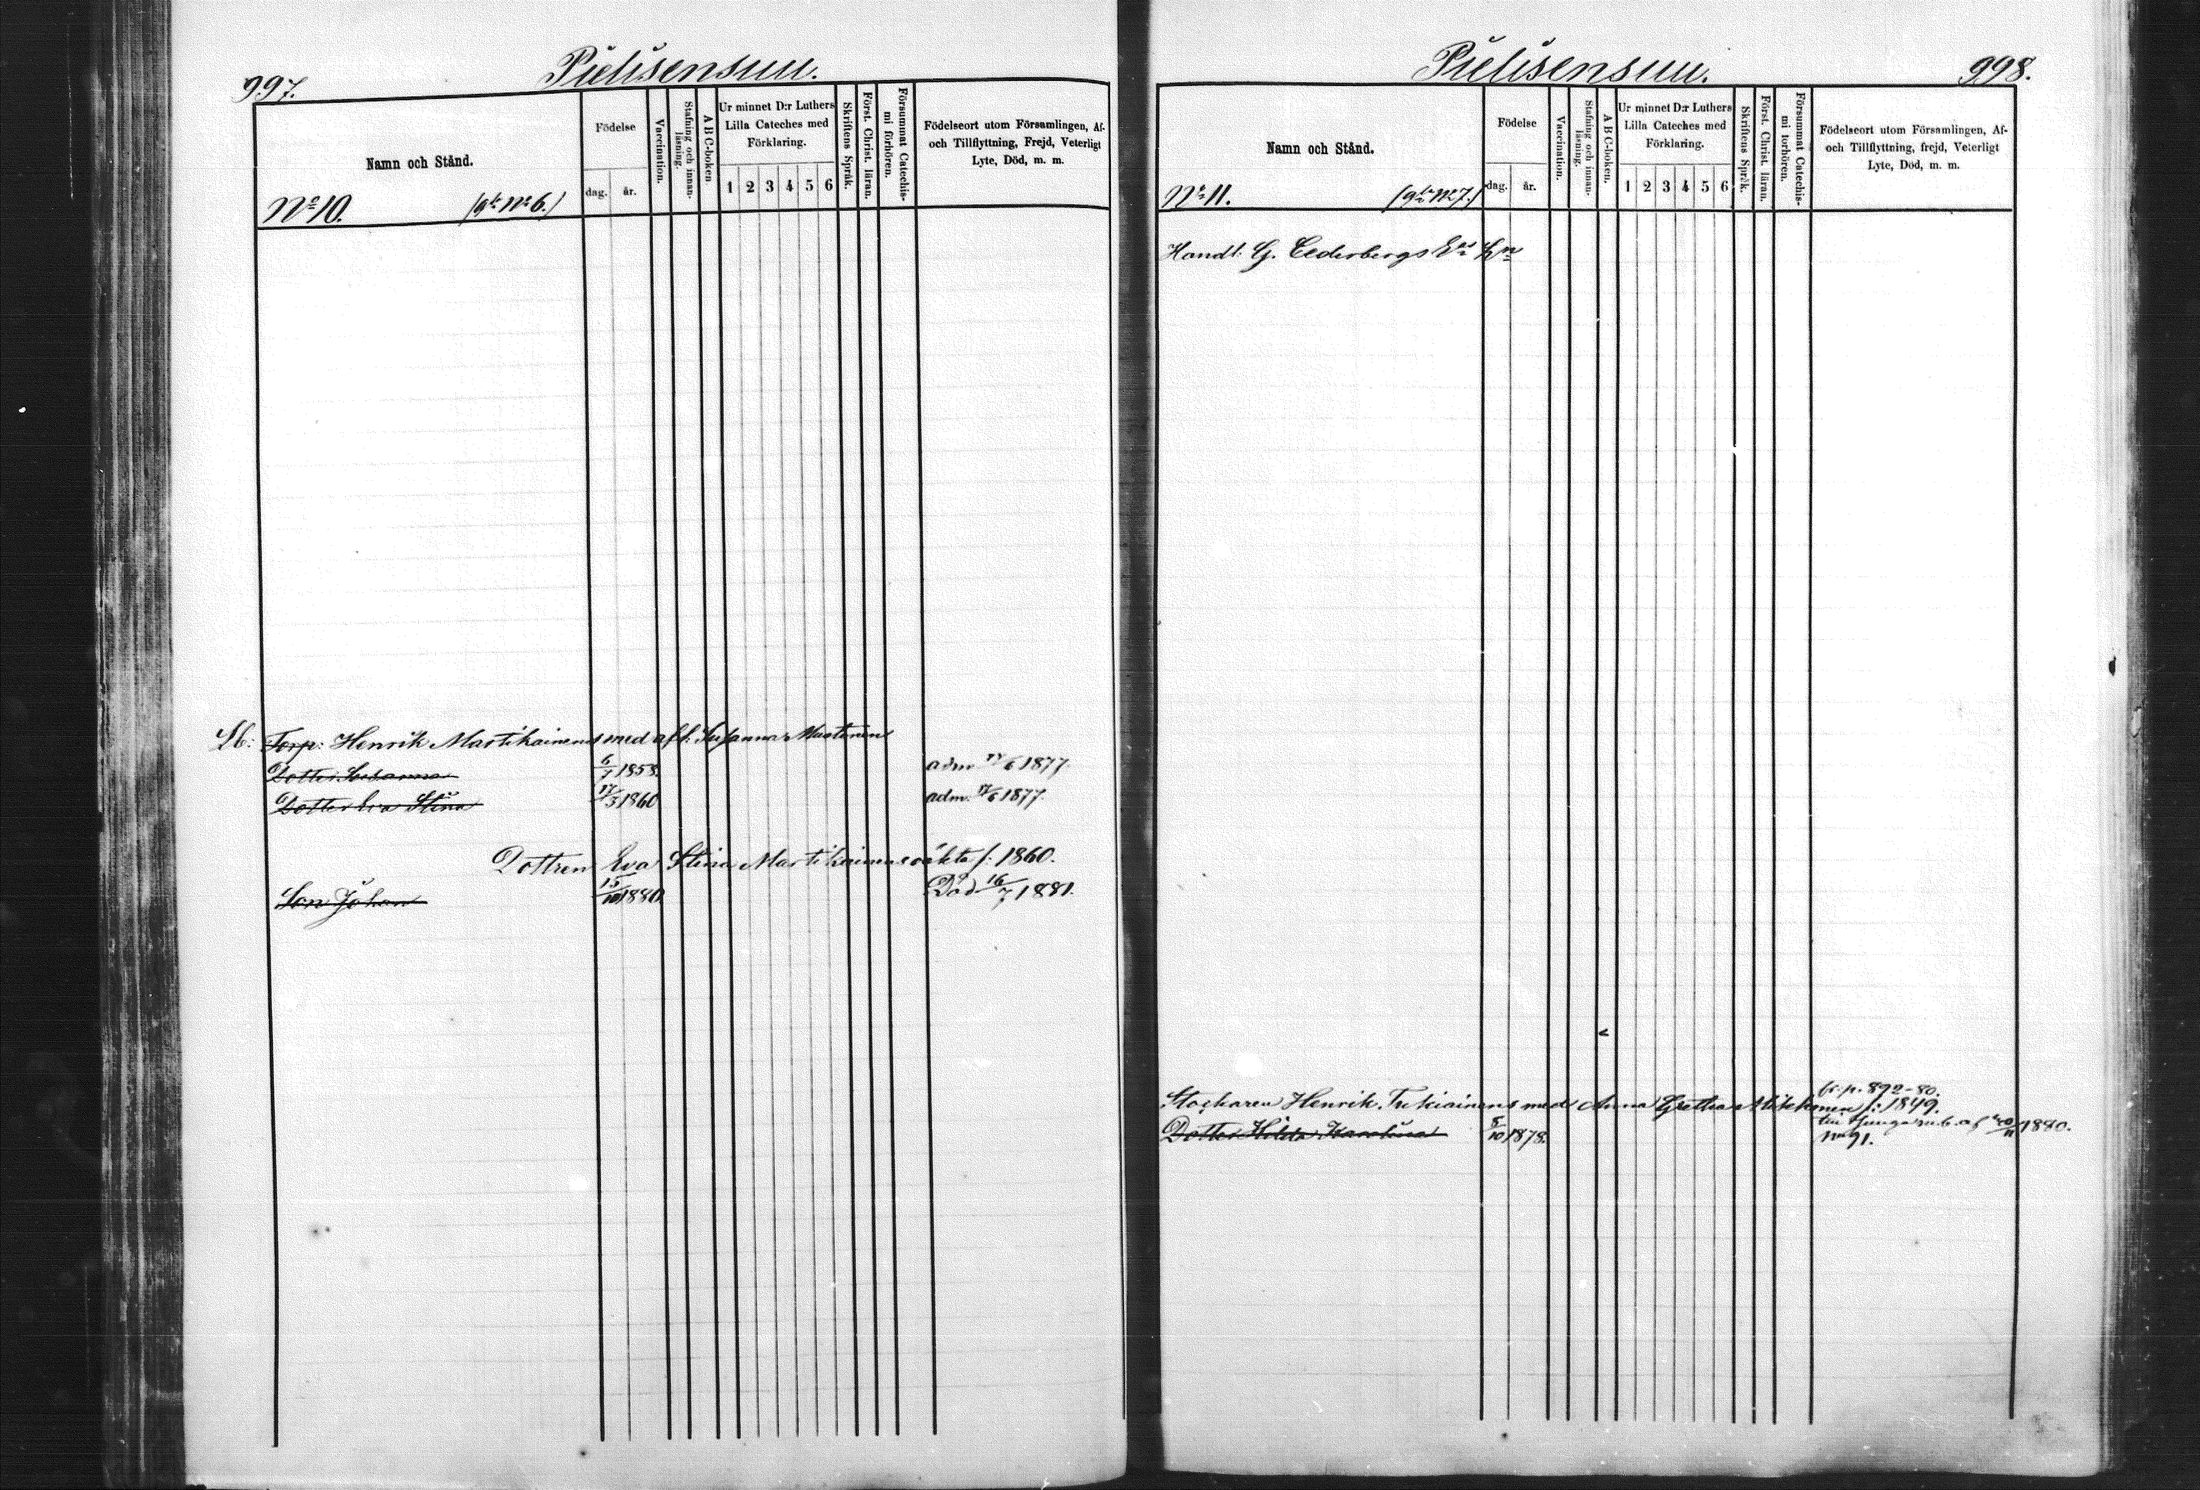 997.
Pielisensuu.
Namn och Stånd.
Födelse
dag. år.
Vaccination.
Stafning och innanläsning.
A B C-boken
Ur minnet D:r Luthers
Lilla Cateches med
Förklaring.
1 2 3 4 5 6
Skriftens Språk.
Först. Christ. läran.
Försummat Catechismi förhören.
Födelseort utom Församlingen, Af-
och Tillflyttning, Frejd, Veterligt
Lyte, Död, m. m.
No 10. (gl. No 6.)
Torp: Henrik Martikainens med afl. Susanna Mustonen
Dotter Susanna 6/7 1858. adm. 17/6 1877.
Dotter Eva Stina 17/3 1860 adm. 17/6 1877.
Dottren Eva Stina Martikainens oäkta f: 1860.
Son Johan 15/10 1880. Död 16/7 1881.
Pielisensuu.
998.
Namn och Stånd.
Födelse
dag. år.
Vaccination.
Stafning och innanläsning.
A B C-boken.
Ur minnet D:r Luthers
Lilla Cateches med
Förklaring.
1 2 3 4 5 6
Skriftens Språk.
Först. Christ. läran.
Försummat Catechismi förhören.
Födelseort utom Församlingen, Af-
och Tillflyttning, frejd, Veterligt
Lyte, Död, m. m.
No 11. (gl. No 7.)
Handl. G. Cederbergs
fr. p. 892-80.
Henrik Tukiainens med Anna Gretha f: 1849.
Dotter Hilda Karolina 8/10 1878. af 1880.
No 91.